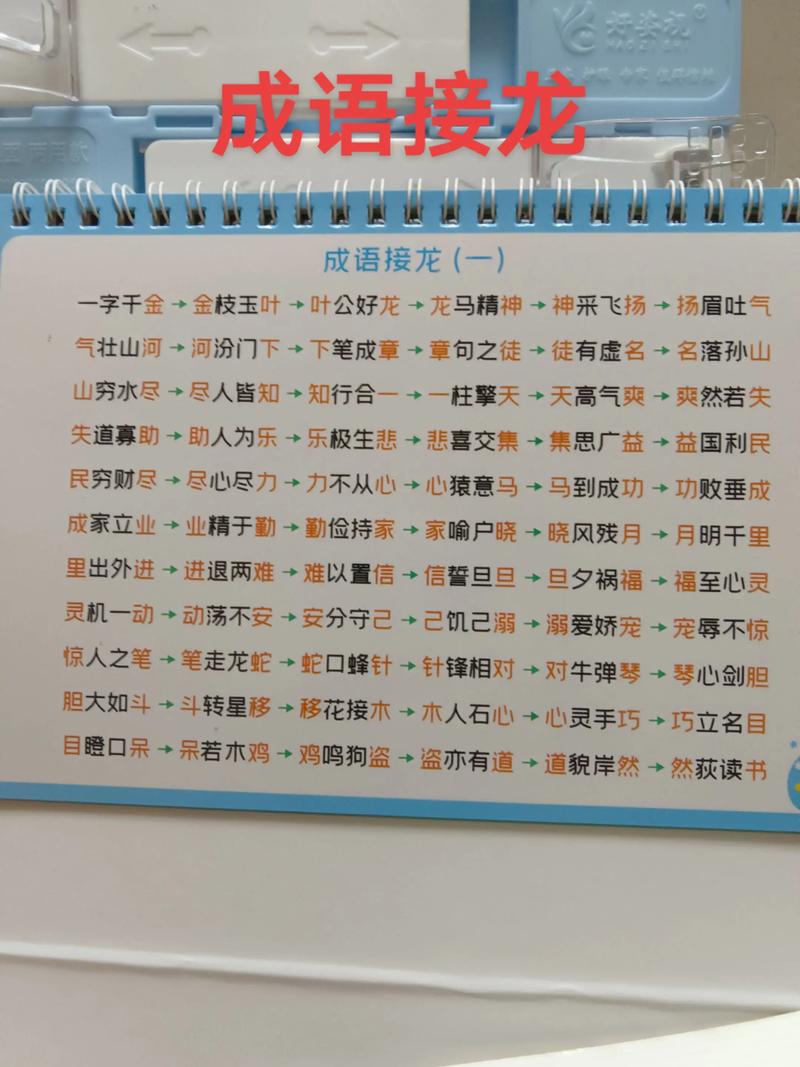 成语接龙
成语接龙(一)
一字千金→金枝玉叶→叶公好龙→龙马精神→神采飞扬→扬眉吐气
气壮山河→河汾门下→下笔成章→章句之徒→徒有虚名→名落孙山
山穷水尽→尽人皆知→知行合一→一柱擎天→天高气爽→爽然若失
失道寡助→助人为乐→乐极生悲→悲喜交集→集思广益→益国利民
民穷财尽→尽心尽力→力不从心→心猿意马→马到成功→功败垂成
成家立业→业精于勤→勤俭持家→家喻户晓→晓风残月→月明千里
里出外进→进退两难→难以置信→信誓旦旦→旦夕祸福→福至心灵
灵机一动→动荡不安→安分守己→己饥己溺→溺爱娇宠→宠辱不惊
惊人之笔→笔走龙蛇→蛇口蜂针→针锋相对→对牛弹琴→琴心剑胆
胆大如斗→斗转星移→移花接木→木人石心→心灵手巧→巧立名目
目瞪口呆→呆若木鸡→鸡鸣狗盗→盗亦有道→道貌岸然→然荻读书